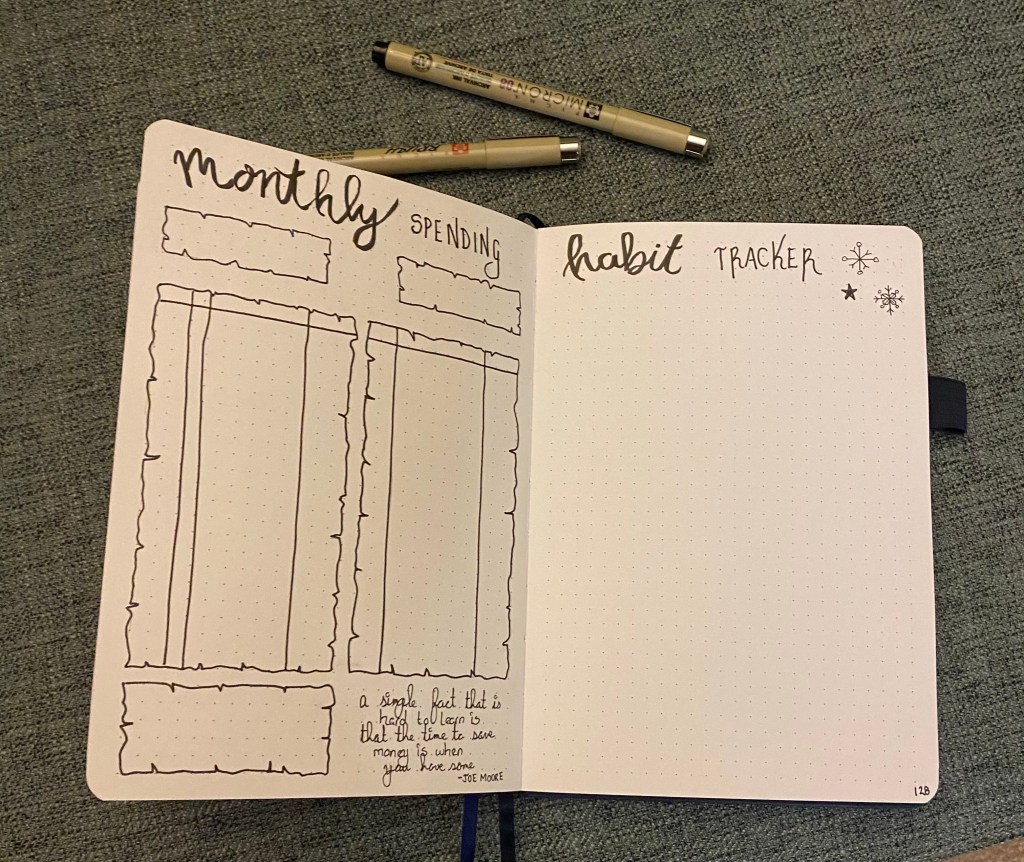 MICRON 08
ARCHIVAL INK
monthly SPENDING
habit TRACKER
a single fact that is
hard to learn is
that the time to save
money is when
you have some
-JOE MOORE
128